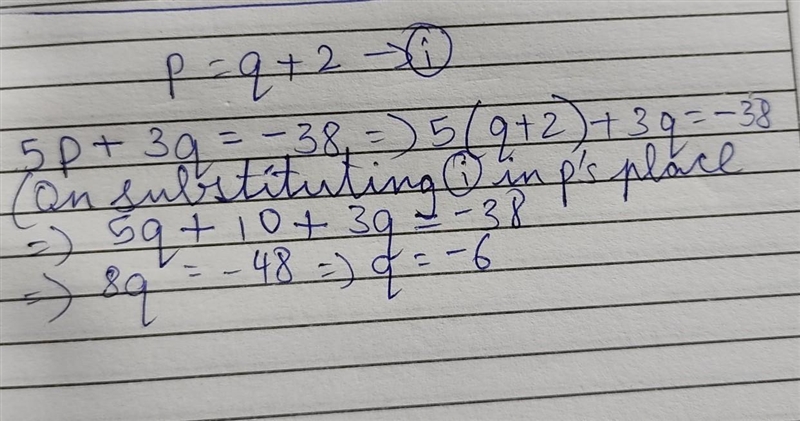 p = q + 2 → (i)
5p + 3q = -38 => 5(q+2) + 3q = -38
(On substituting (i) in p's place
=> 5q + 10 + 3q = -38
=> 8q = -48 => q = -6